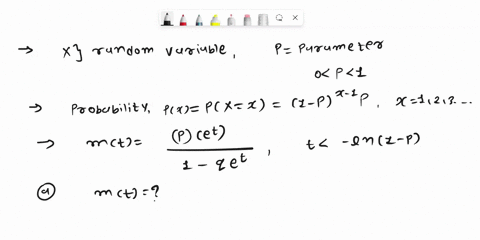 → X } random variable, P = Parameter
0 < P < 1
→ Probability, P(x) = P(X = x) = (1-P)^{x-1} P, x = 1, 2, 3 ....
→ m(t) = \frac{(P)(e^t)}{1 - qe^t}, t < -ln(1-P)
(a) m(t) = ?